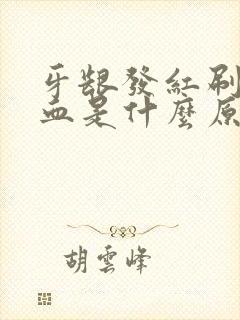 牙龈發紅刷
血是什麽原
胡雲峰